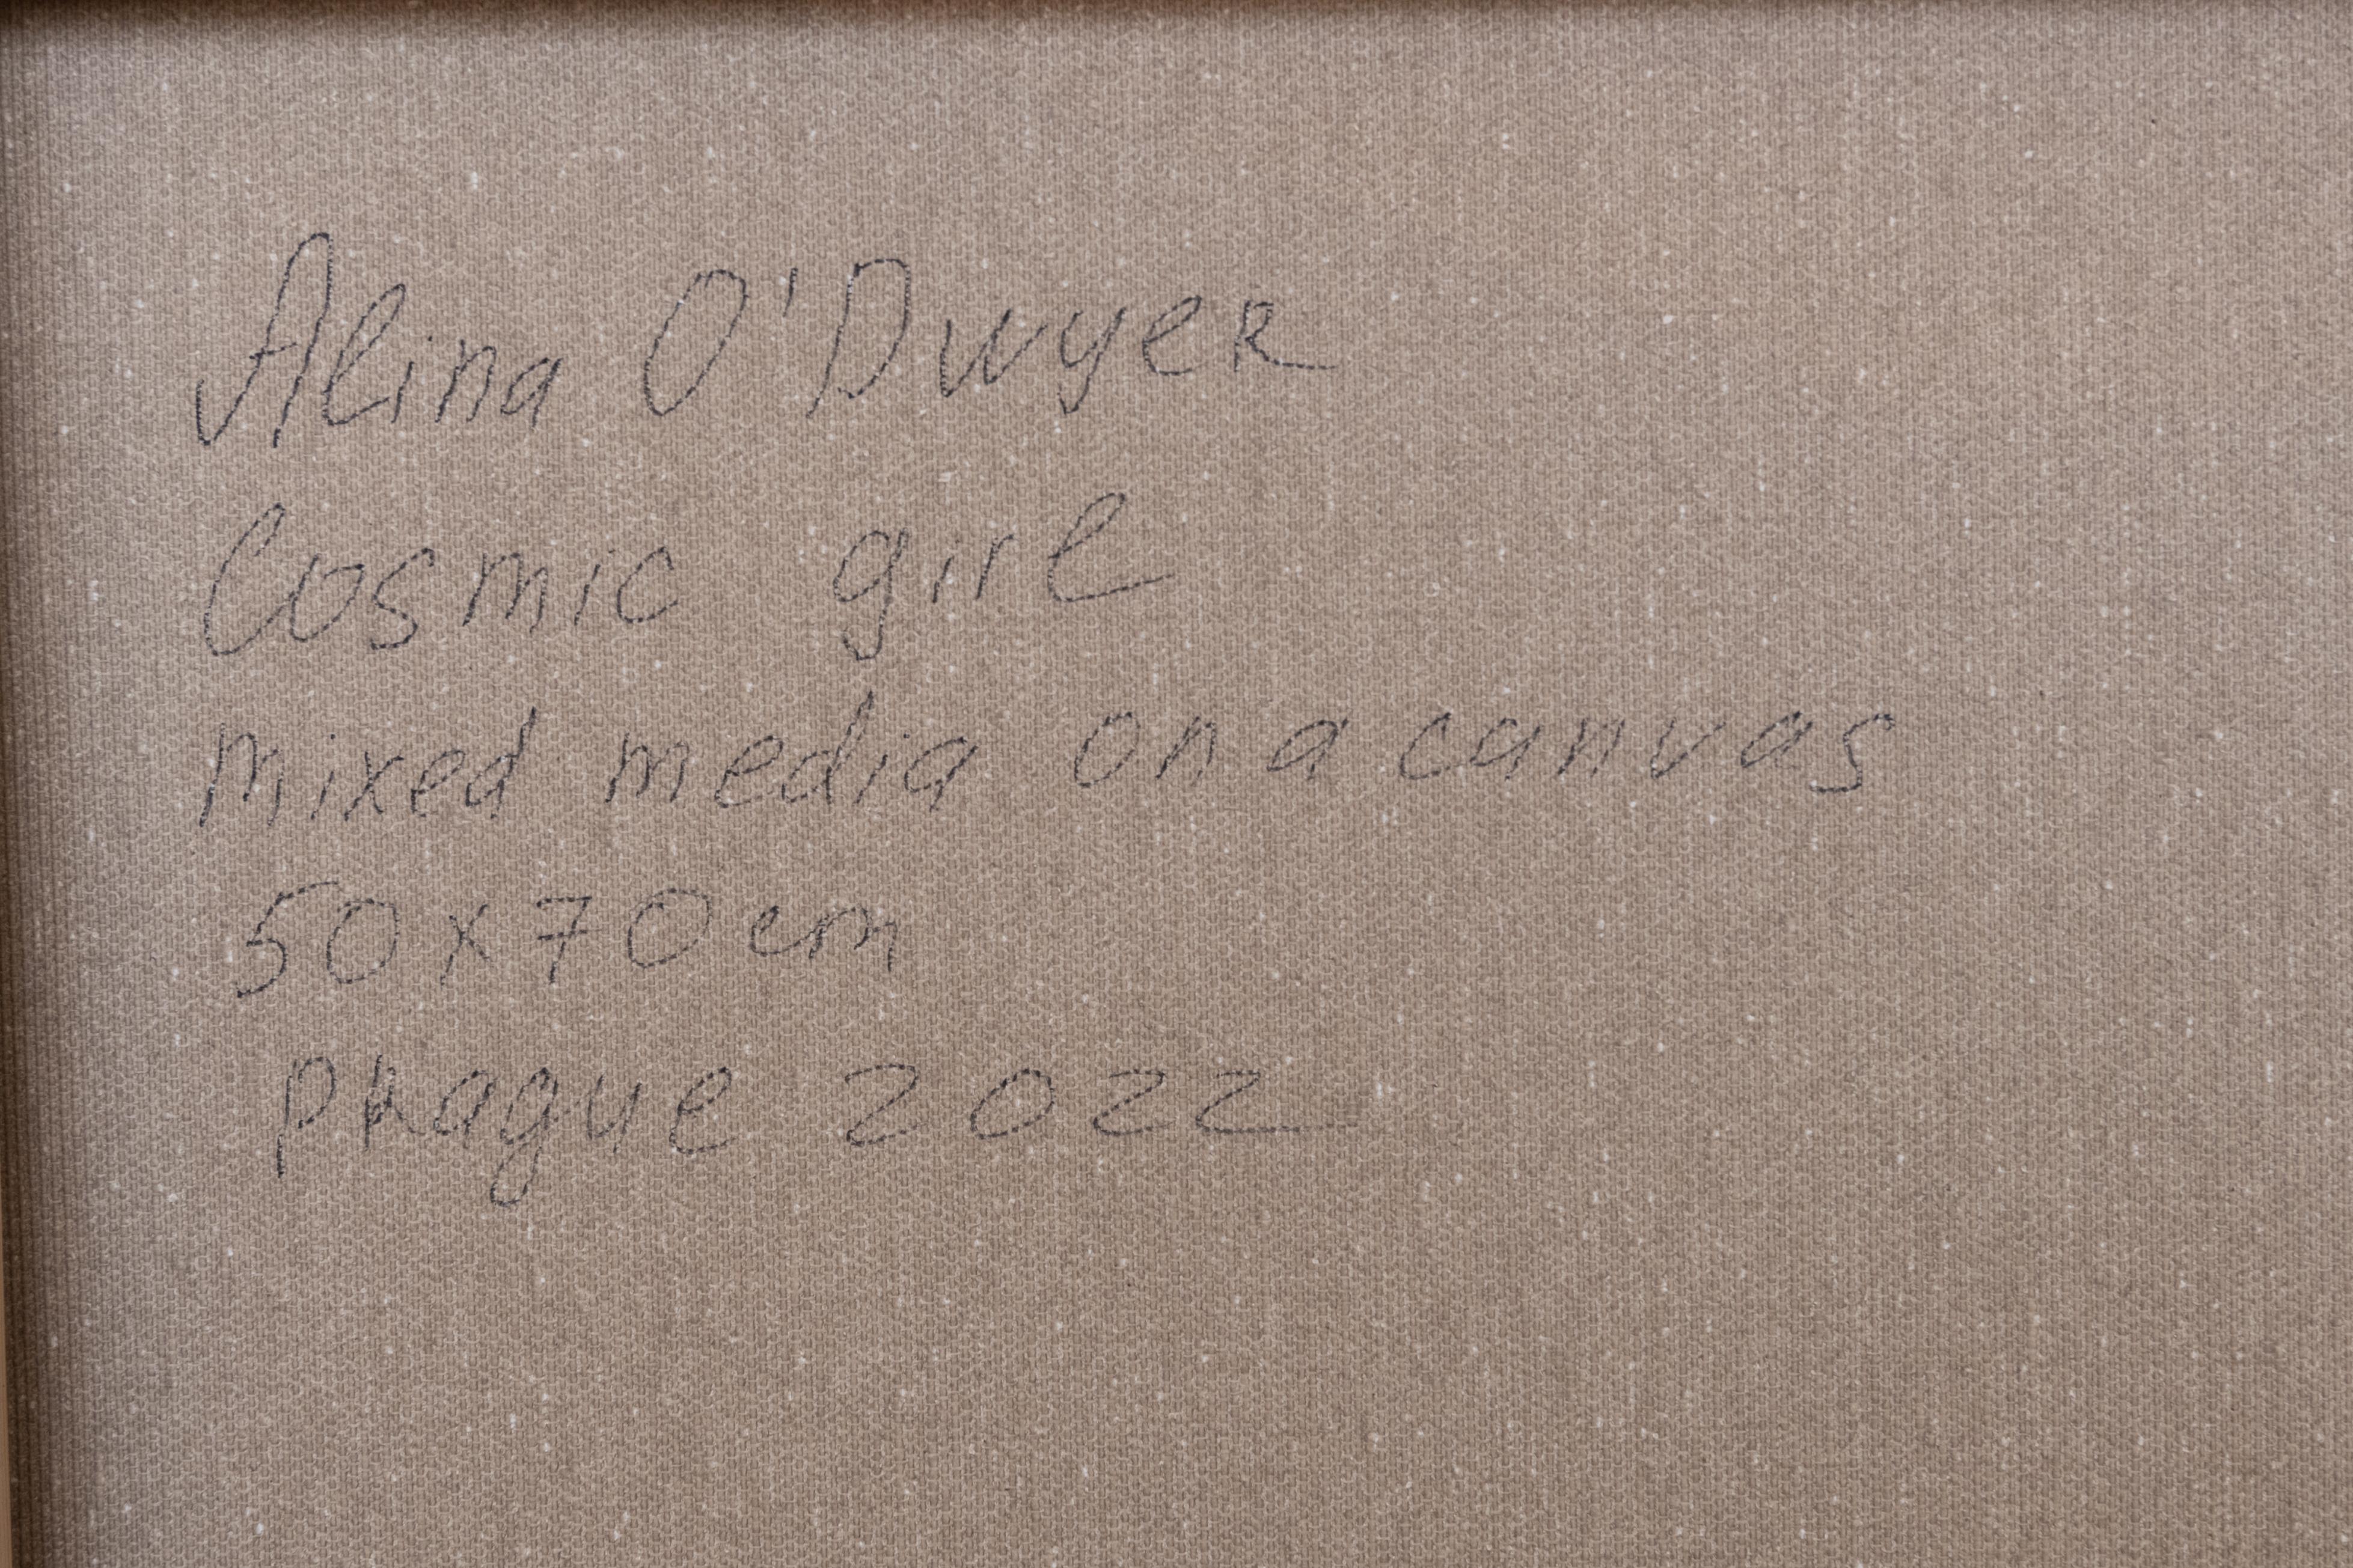 Alina O'Dwyer
Cosmic girl
mixed media on a canvas
50x70cm
Prague 2022